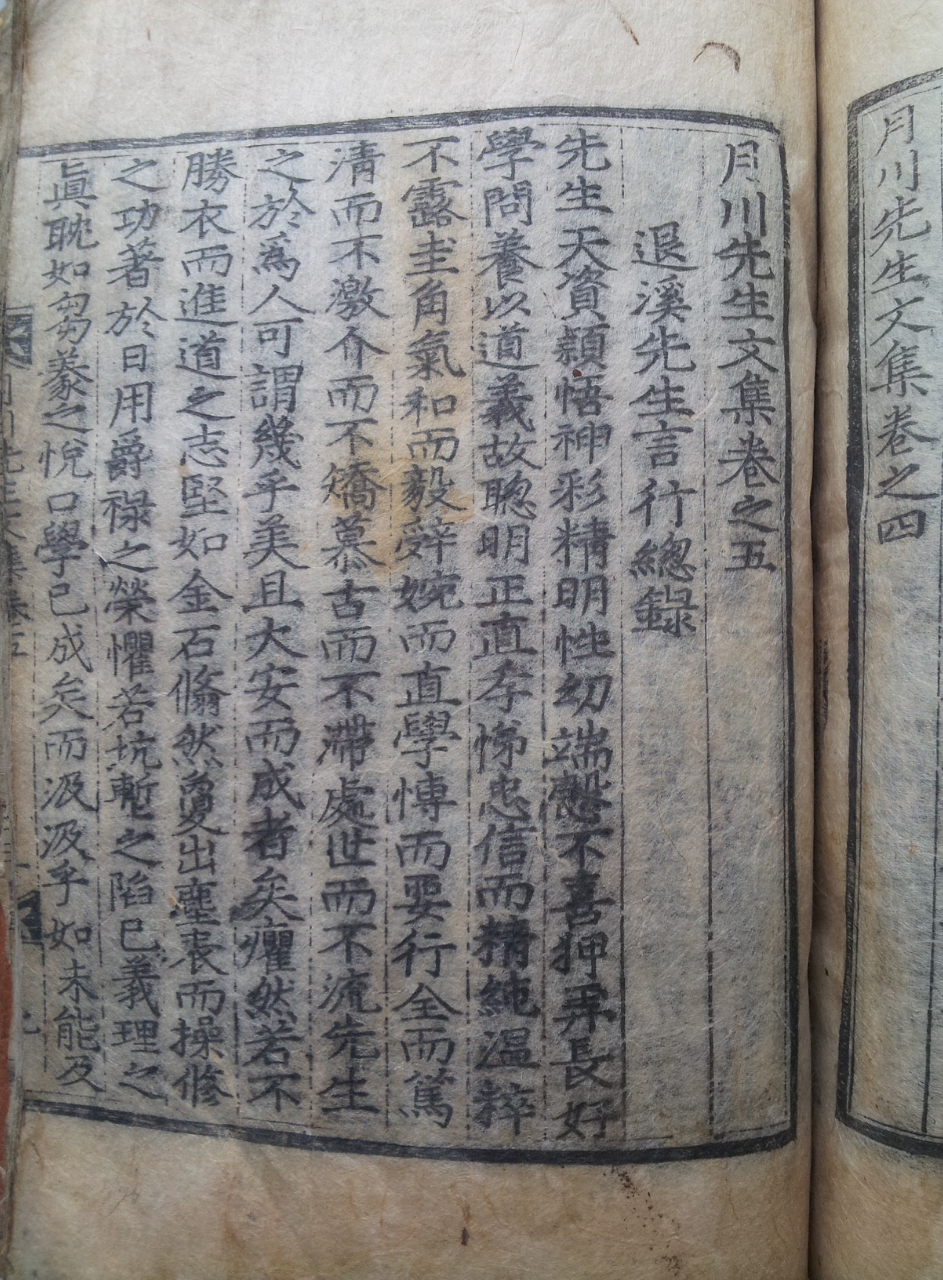 月川先生文集卷之四
月川先生文集卷之五
退溪先生言行總錄
先生天資穎悟神彩精明性幼端慤不喜狎弄長好
學問養以道義故聰明正直孝悌忠信而精純溫粹
不露圭角氣和而毅辭婉而直學博而要行全而篤
清而不激介而不矯慕古而不滯處世而不流先生
之於爲人可謂幾乎美且大安而成者矣癯然若不
勝衣而進道之志堅如金石翛然夐出塵表而操修
之功著於日用爵祿之榮懼若坑塹之陷已義理之
眞耽如芻豢之悅口學已成矣而汲汲乎如未能及